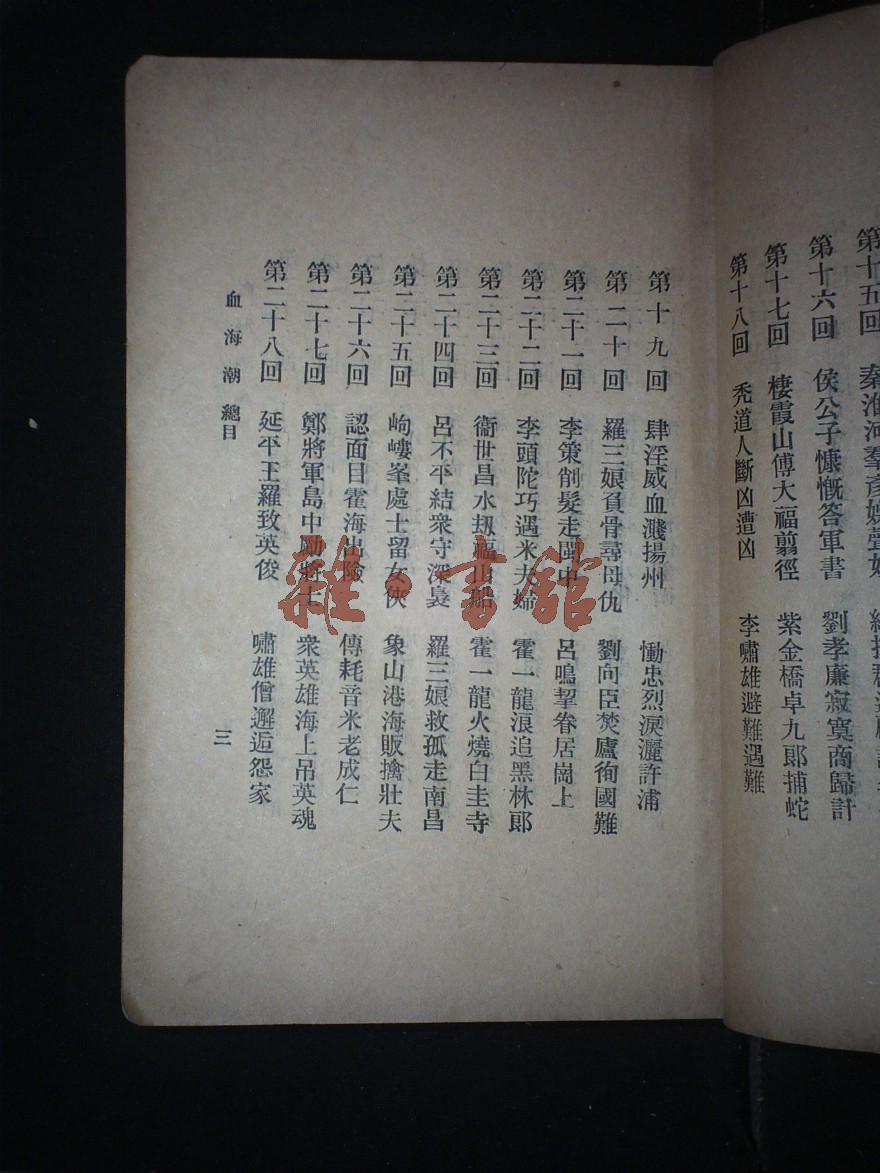 第十五回 秦淮河羣彥
第十六回 侯公子慷慨答軍書 劉孝廉寂寞商歸計
第十七回 棲霞山傅大福翦徑 紫金橋卓九郎捕蛇
第十八回 禿道人斷凶遭凶 李嘯雄避難遇難
第十九回 肆淫威血濺揚州 慟忠烈淚灑許浦
第二十回 羅三娘負骨尋母仇 劉向臣焚廬徇國難
第二十一回 李策削髮走閩中 呂鳴挈眷居崗上
第二十二回 李頭陀巧遇米夫婦 霍一龍浪追黑林郎
第二十三回 衞世昌水刼福山船 霍一龍火燒白圭寺
第二十四回 呂不平結衆守深㠱 羅三娘救孤走南昌
第二十五回 岣嶁峯處士留女俠 象山港海販擒壯夫
第二十六回 認面目霍海出險 傳耗音米老成仁
第二十七回 鄭將軍島中勵將士 衆英雄海上吊英魂
第二十八回 延平王羅致英俊 嘯雄僧邂逅怨家
血海潮 總目 三
雜·書館